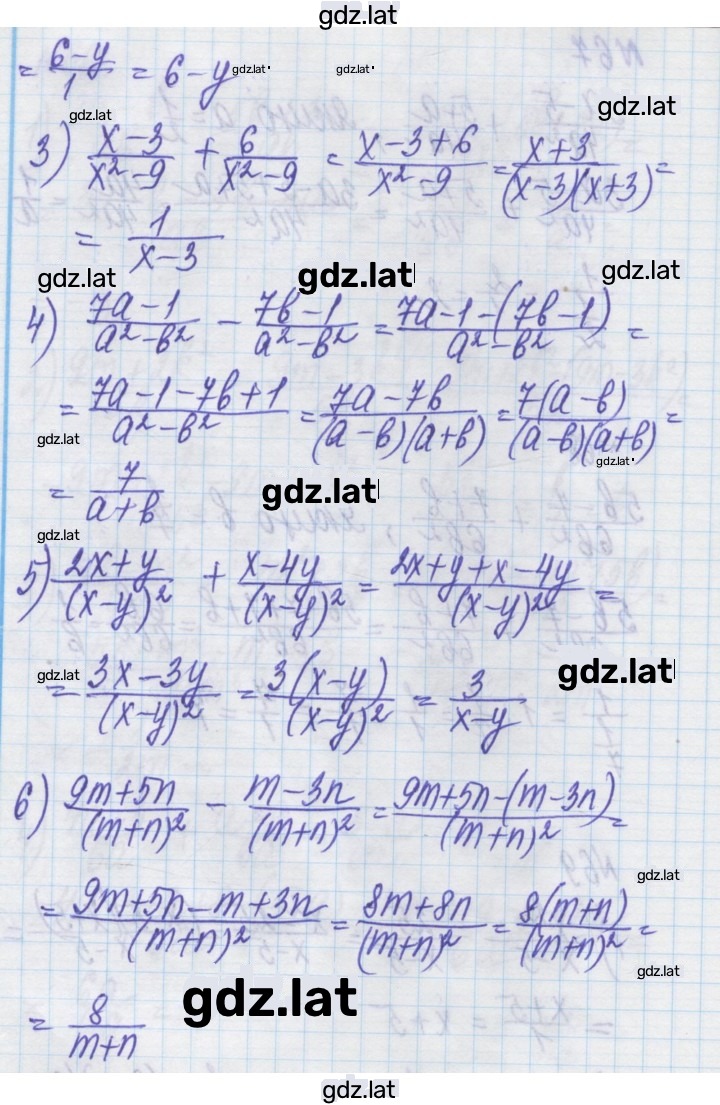 gdz.lat
= (6-y)/1 = 6-y gdz.lat gdz.lat
gdz.lat gdz.lat
3) (x-3)/(x²-9) + 6/(x²-9) = (x-3+6)/(x²-9) = (x+3)/((x-3)(x+3)) =
= 1/(x-3)
gdz.lat gdz.lat gdz.lat
4) (7a-1)/(a²-b²) - (7b-1)/(a²-b²) = (7a-1-(7b-1))/(a²-b²) =
= (7a-1-7b+1)/(a²-b²) = (7a-7b)/((a-b)(a+b)) = (7(a-b))/((a-b)(a+b)) =
gdz.lat gdz.lat
= 7/(a+b) gdz.lat
gdz.lat
5) (2x+y)/(x-y)² + (x-4y)/(x-y)² = (2x+y+x-4y)/(x-y)² =
gdz.lat gdz.lat
= (3x-3y)/(x-y)² = (3(x-y))/(x-y)² = 3/(x-y)
6) (9m+5n)/(m+n)² - (m-3n)/(m+n)² = (9m+5n-(m-3n))/(m+n)² =
gdz.lat
= (9m+5n-m+3n)/(m+n)² = (8m+8n)/(m+n)² = (8(m+n))/(m+n)² =
gdz.lat
gdz.lat
= 8/(m+n)
gdz.lat